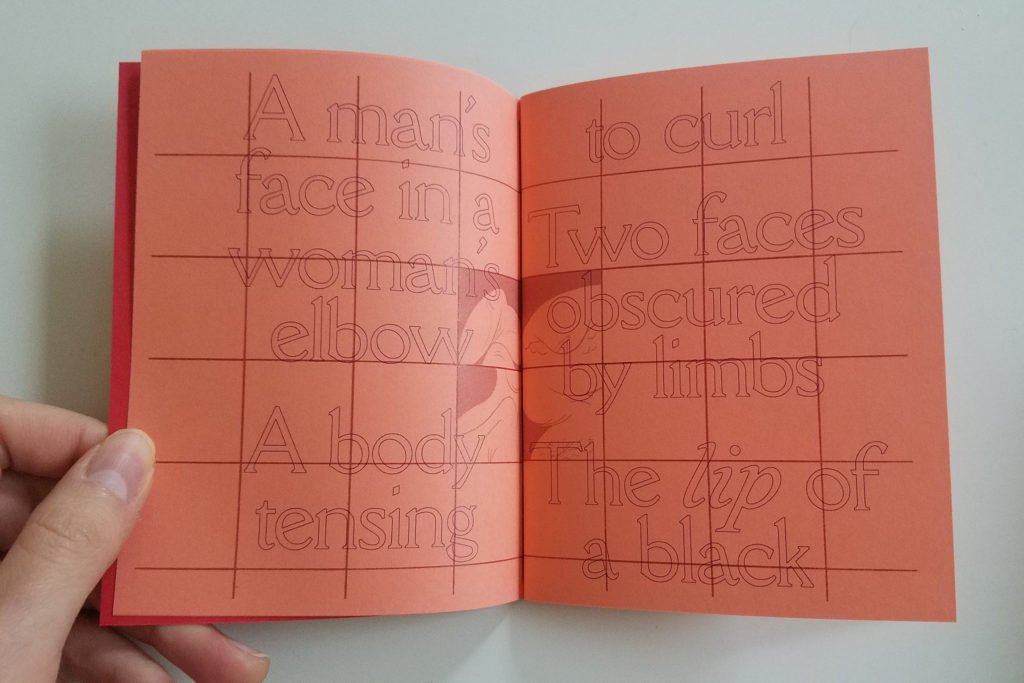 A man's
face in a
woman's
elbow
A body
tensing
to curl
Two faces
obscured
by limbs
The lip of
a black